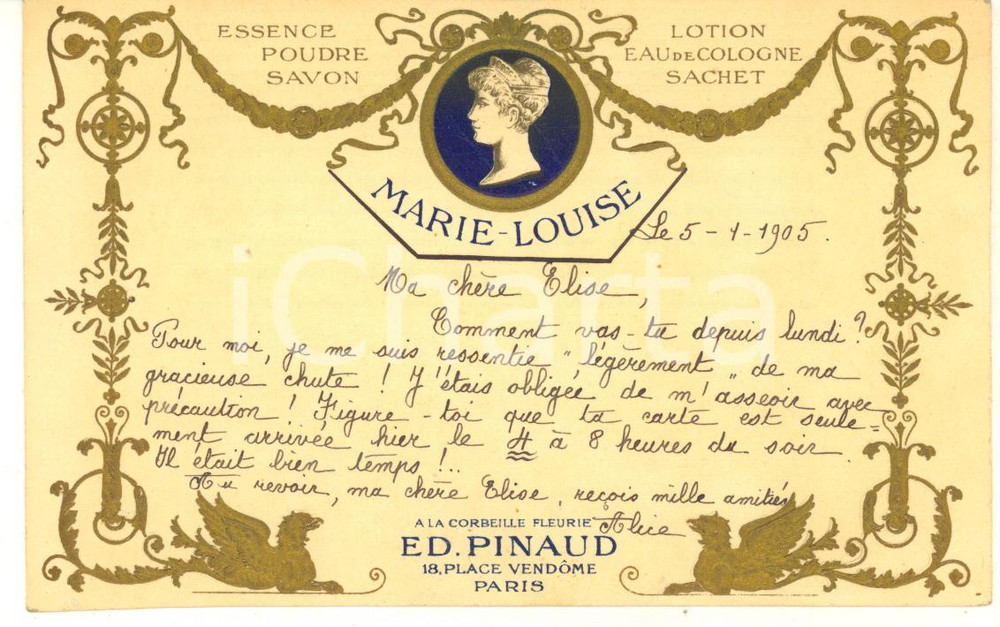 ESSENCE
POUDRE
SAVON
LOTION
EAU DE COLOGNE
SACHET
MARIE-LOUISE
Le 5-1-1905.
Ma chère Elise,
Comment vas-tu depuis lundi?
Pour moi, je me suis ressentie "légèrement" de ma
gracieuse chute! J'étais obligée de m'asseoir avec
précaution! Figure-toi que ta carte est seule=
ment arrivée hier le 4 à 8 heures du soir.
Il était bien temps!..
Au revoir, ma chère Elise, reçois mille amitiés
Alice
A LA CORBEILLE FLEURIE
ED. PINAUD
18, PLACE VENDÔME
PARIS
iCharta